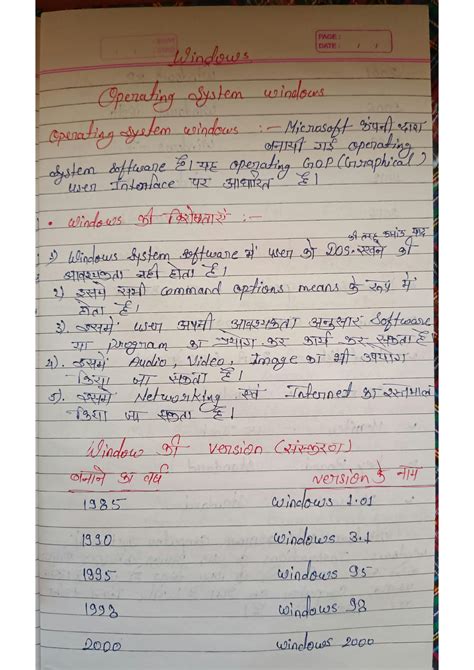 PAGE:
DATE: / /
Windows
Operating System windows
Operating System windows :- Microsoft कंपनी द्वारा
बनायी गई operating
System Software है। यह operating GOP (Graphical)
user Interface पर आधारित है।
• Windows की विशेषताएं :-
की तरह कमांड याद
1) Windows System Software में user को DOS रखने की
आवश्यकता नहीं होता है।
2) इसमें सभी Command options means के रूप में
होता है।
3) इसमें user अपनी आवश्यकता अनुसार Software
या Program का प्रयोग कर कार्य कर सकता है
4). इसमें Audio, Video, Image का भी उपयोग
किया जा सकता है।
5). इसमें Networking एवं Internet का इस्तमाल
किया जा सकता है।
Window की version (संस्करण)
बनाने का वर्ष version के नाम
1985 windows 1.01
1990 windows 3.1
1995 windows 95
1998 windows 98
2000 windows 2000